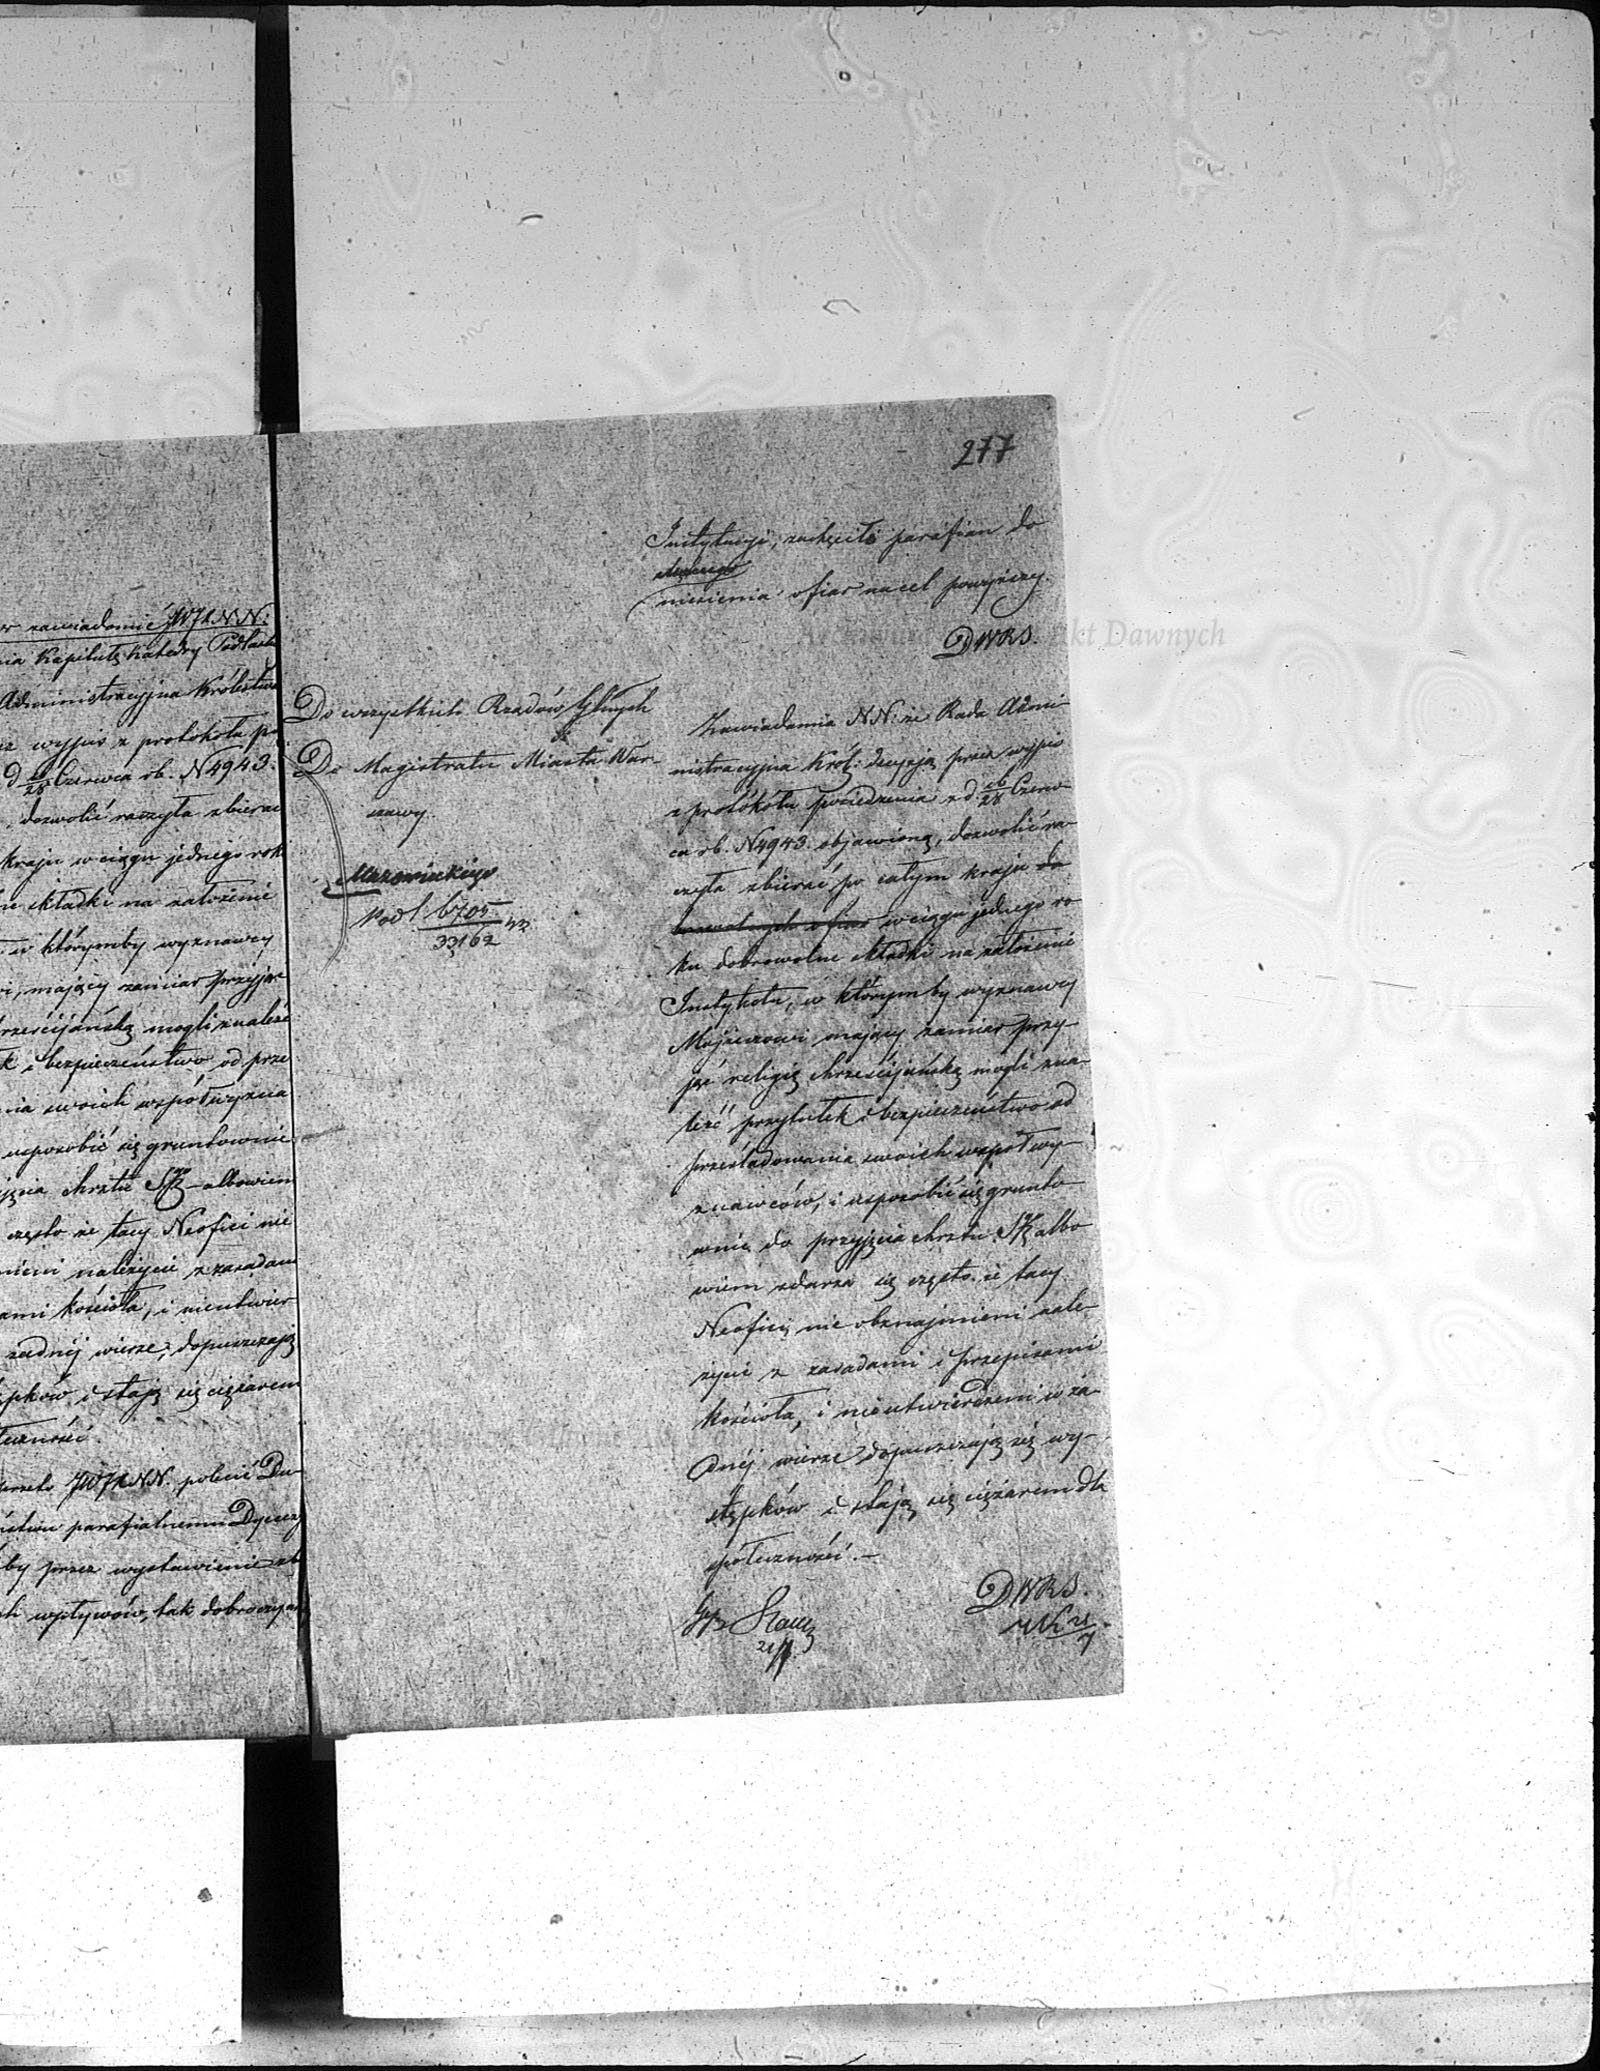 zawiadomić JW JX NN:
nia Kapitułę Katedry Podlask
Administracyjna Królestwa
wypis z protokołu po
d 16/28 Czerwca rb. N 4943.
dozwolić raczyła zbierać
kraju w ciągu jednego rok
składki na założenie
w którymby wyznawcy
wi, mający zamiar przyjąć
rześcijańską mogli znaleźć
k i bezpieczeństwo od prze
nia swoich współwyzna
usposobić się gruntownie
jęcia chrztu Sgo albowiem
często że tacy Neofici nie
mieni należycie z zasadam
ami kościoła, i nieutwier
żadnéj wierze, dopuszczają
pków i stają się ciężarem
łeczności.
przeto JW JX NN. polecić Du
ństwu parafialnemu Dyecezy
by przez wystawienie
ch wpływów, tak dobroczyn
277
Instytucyi, zachęciło parafian do
niesienia ofiar na cel powyższy.
DWRS.
Do wszystkich Rządów Gbnych
i
Do Magistratu Miasta War-
szawy.
Mazowieckiego
Podl 6705
33162
Zawiadamia NN: że Rada Admi-
nistracyjna Król: decyzją przez wypis
z protokółu posiedzenia z d. 16/28 Czerw-
ca rb. N 4943 objawioną, dozwolić ra-
czyła zbierać po całym kraju do
browolnych ofiar w ciągu jednego ro
ku dobrowolne składki na założenie
Instytutu, w którymby wyznawcy
Mojżeszowi mający zamiar przy-
jąć religię chrześcijańską mogli zna-
leźć przytułek i bezpieczeństwo od
prześladowania swoich współwy-
znawców, i usposobić się grunto-
wnie do przyjęcia chrztu Sgo albo
wiem zdarza się często że tacy
Neofici, nie obznajmieni nale-
życie z zasadami i przepisami
kościoła, i nieutwierdzeni w ża-
dnéj wierze dopuszczają się wy-
stępków i stają się ciężarem dla
społeczności.—
DWRS.
21/7